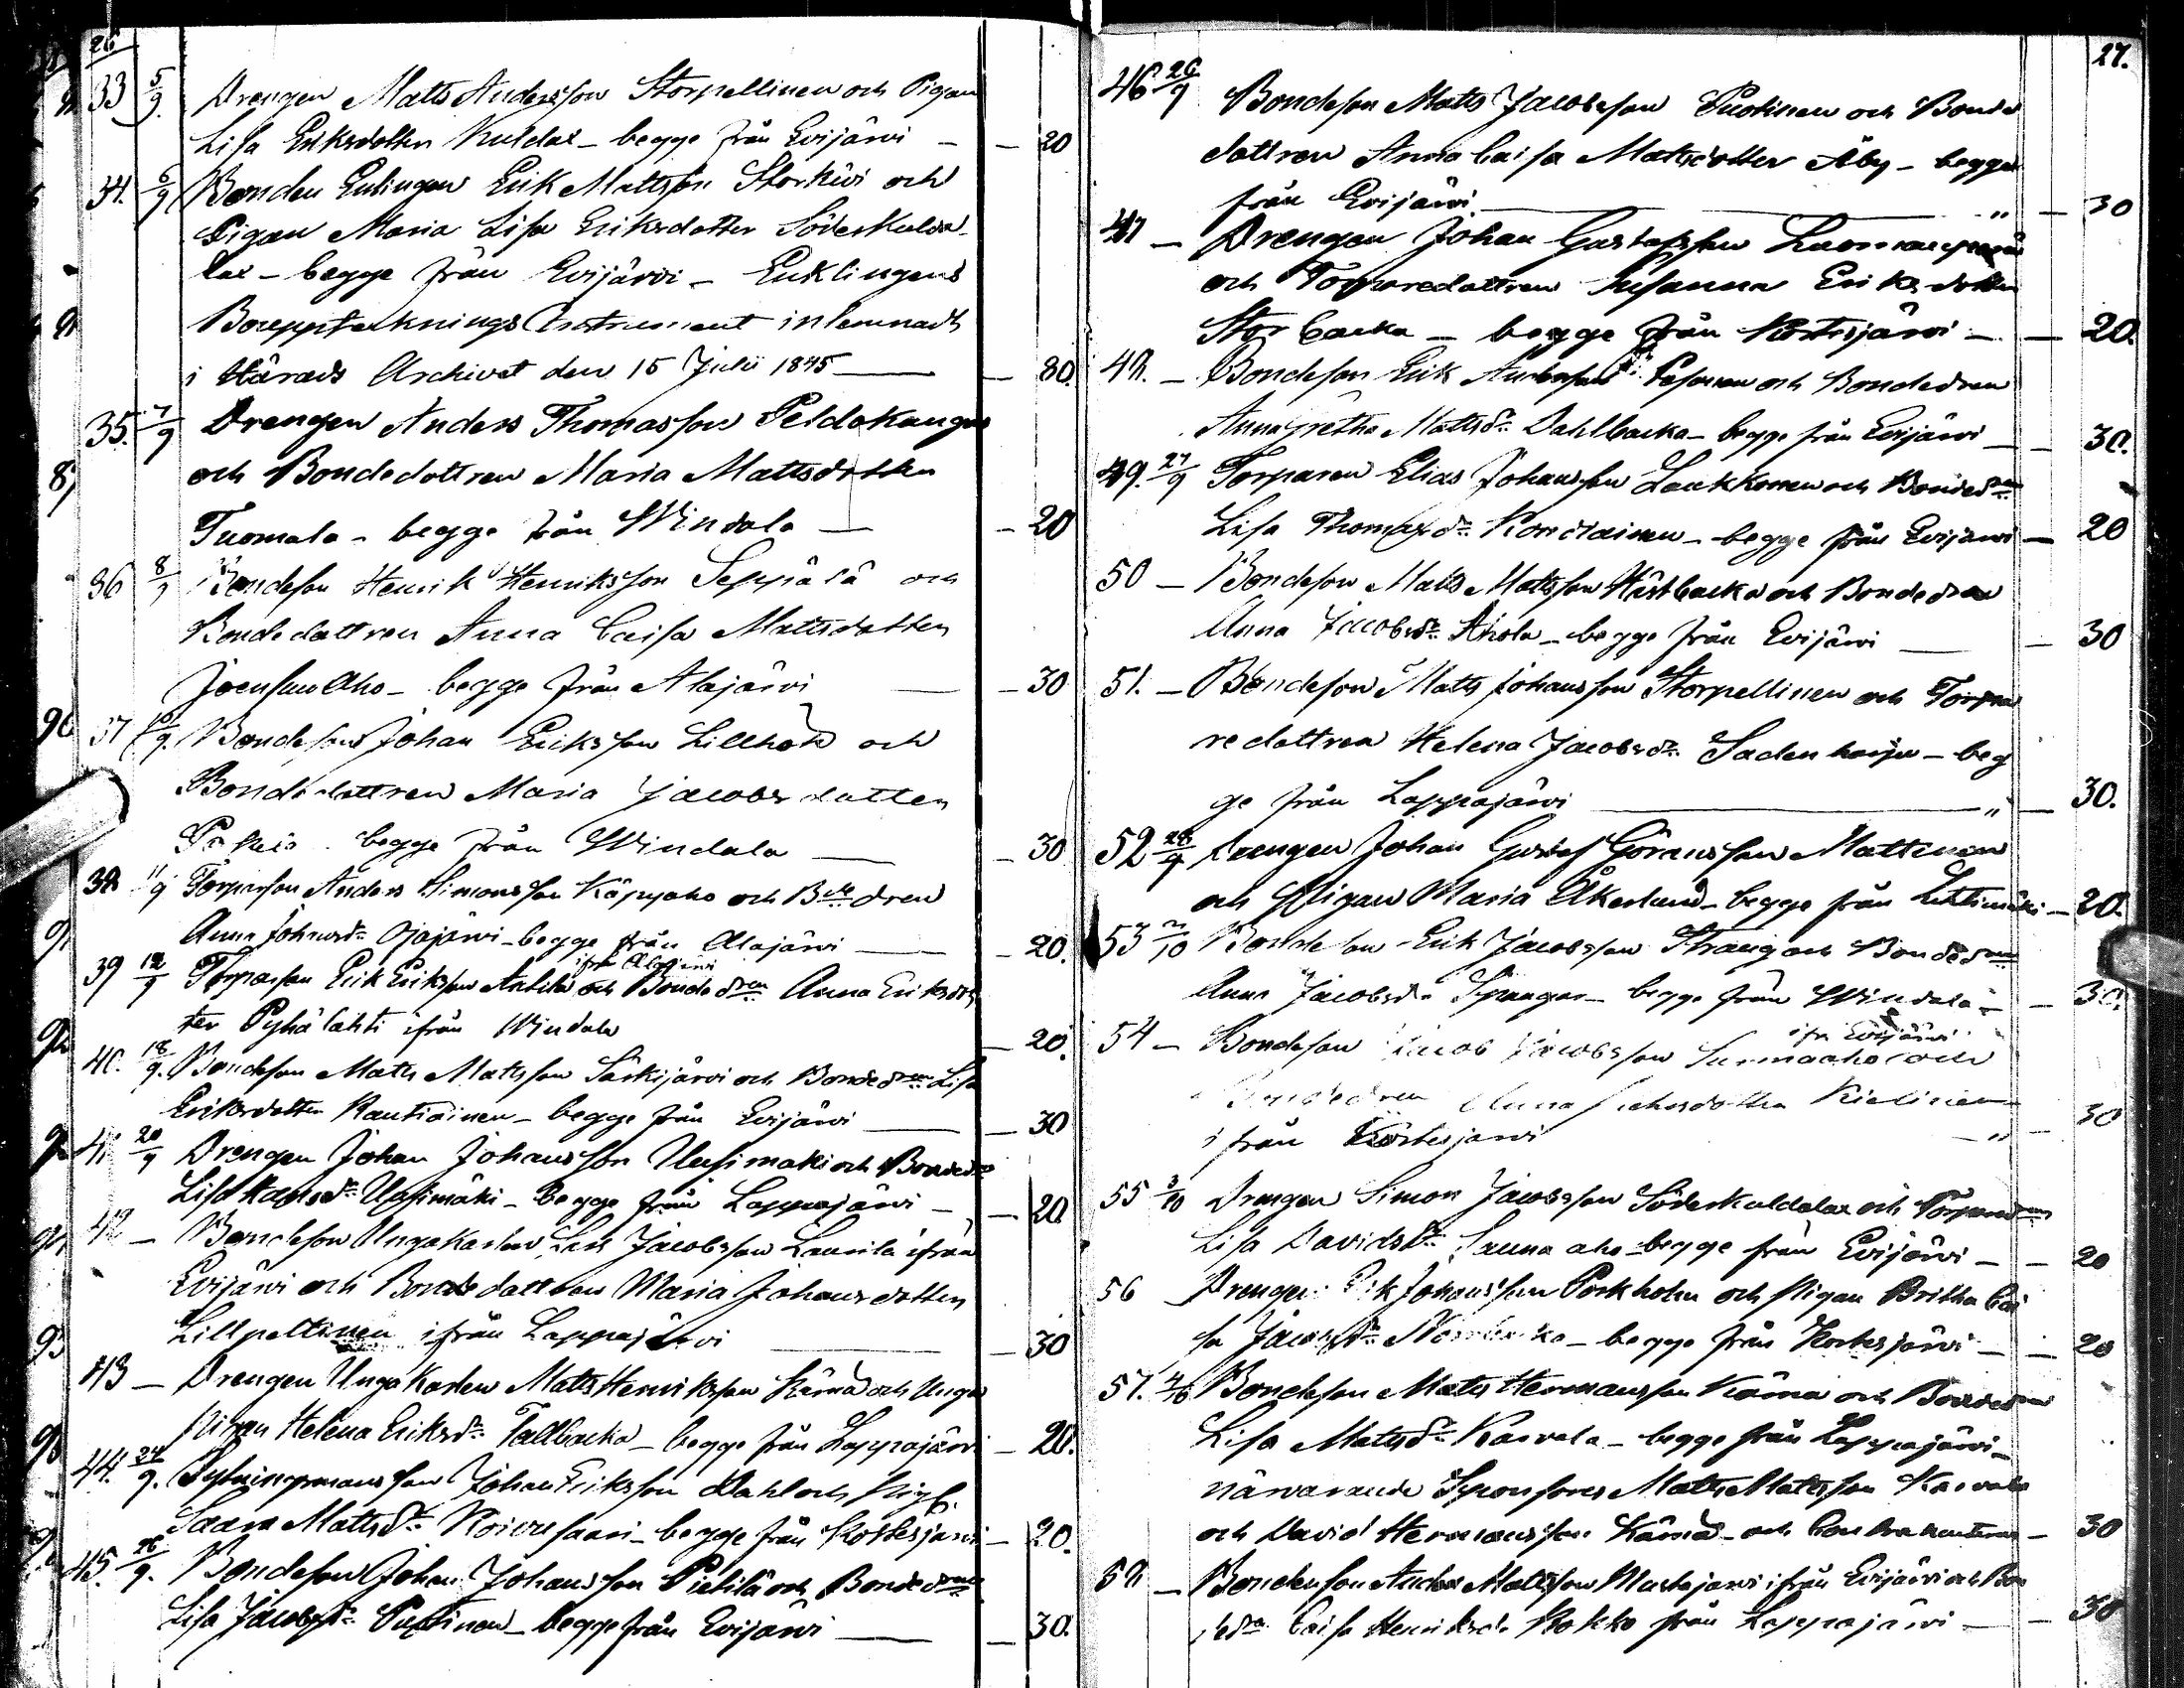 26
33 5/9. Drengen Matts Andersson Storpellinen och Pigan
Lisa Eriksdotter Kuldal - begge från Evijärvi - - 20
34. 6/9 Bonden Enklingen Erik Mattsson Storkivi och
Pigan Maria Lisa Eriksdotter Söderkulda-
lax - begge från Evijärvi - Enklingens
Bouppteknings Instrument inlemnadt
i Härads Archivet den 15 Julii 1845 - 30.
35. 7/9 Drengen Anders Thomasson Peldokangas
och Bondedottren Maria Mattsdotter
Tuomala - begge från Windala - 20
36 8/9 Bondeson Henrik Henriksson Seppälä och
Bondedottren Anna Caisa Mattsdotter
Joensuu Aho - begge från Alajärvi - 30
37 10/9. Bondeson Johan Eriksson Lillhok och
Bondedottren Maria Jacobsdotter
begge från Windala - 30
38 11/9 Torparson Anders Simonsson Käpyaho och Bdedren
Anna Johansdr Ojajärvi - begge från Alajärvi - 20.
ifrån Alajärvi
39 12/9 Torparson Erik Eriksson Anttila och Bondedren Anna Eriksdot
ter Pyhälahti ifrån Windala - 20.
40. 18/9. Bondeson Matts Mattsson Särkijärvi och Bondedren Lisa
Eriksdotter Rautiainen - begge från Evijärvi - 30
41 20/9 Drengen Johan Johansson Uusimäki och Bondedr
Lisa Hansdr Uusimäki - begge från Lappajärvi - 20
42 - Bondeson Ungakarlen Jacobsson Laurila ifrån
Evijärvi och Bondedottren Maria Johansdotter
Lillpeltinen ifrån Lappajärvi - 30
43 - Drengen Ungakarlen Matts Henriksson Kärnä och Unga
Pigan Helena Eriksdr Tallbacka - begge från Lappajärvi - 20.
44. 24/9. Johan Eriksson Dahl och Pig.
Saara Mattsdr Koivusaari - begge från Kortesjärvi - 20.
45. 26/9. Bondeson Johan Johansson Pietilä och Bondedren
Lisa Jacobsdr Puotinen - begge från Evijärvi - 30.
27.
46 26/9 Bondeson Matts Jacobsson Puotinen och Bonde
dottren Anna Caisa Mattsdotter Åby - begge
från Evijärvi - " - 30
47 - Drengen Johan Gustafsson
och Torparedottren Susanna Eriksdotter
Storbacka - begge från Kortesjärvi - 20.
48. - Bondeson Erik Andersson Pesonen och Bondedren
Anna Gretha Mattsdr Dahlbacka - begge från Evijärvi - 30.
49. 27/9 Torparen Elias Johansson Laukkonen och Bondedren
Lisa Thomasdr Kondainen - begge från Evijärvi - 20
50 - Bondeson Matts Mattsson Hästbacka och Bondedren
Anna Jacobsdr Ahola - begge från Evijärvi - 30
51. - Bondeson Matts Johansson Storpellinen och Torpa
redottren Helena Jacobsdr Sadenharju - beg
ge från Lappajärvi - " - 30.
52 28/9 Drengen Johan Gustaf Göransson Mattinen
och Pigan Maria Åkerlund - begge från Lehtimäki - 20.
53 2/10 Bondeson Erik Jacobsson Strang och Bondedren
Anna Jacobsdr Spangar - begge från Windala - 30.
ifr Evijärvi
54 - Bondeson Jacob Jacobsson Surmaaho och
Bondedren Anna Kielinen
ifrån Kortesjärvi - " - 30
55 3/10 Drengen Simon Jacobsson Söderkuldalax och Torparedren
Lisa Davidsdr Saunaaho - begge från Evijärvi - 20
56 Drengen Erik Johansson Porkholm och Pigan Britha Cai
sa Jacobsdr - begge från Kortesjärvi - 20
57. 4/10 Bondeson Matts Hermansson Kärnä och Bondedren
Lisa Mattsdr Karvala - begge från Lappajärvi -
närvarande Sponsores Matts Mattsson Karvala
och David Hermansson Kärnä - och Contrahenterne - 30
58 - Bondeson Anders Mattsson Mustajärvi ifrån Evijärvi och Bon
dedr Caisa Henriksdr Kokko från Lappajärvi - 30